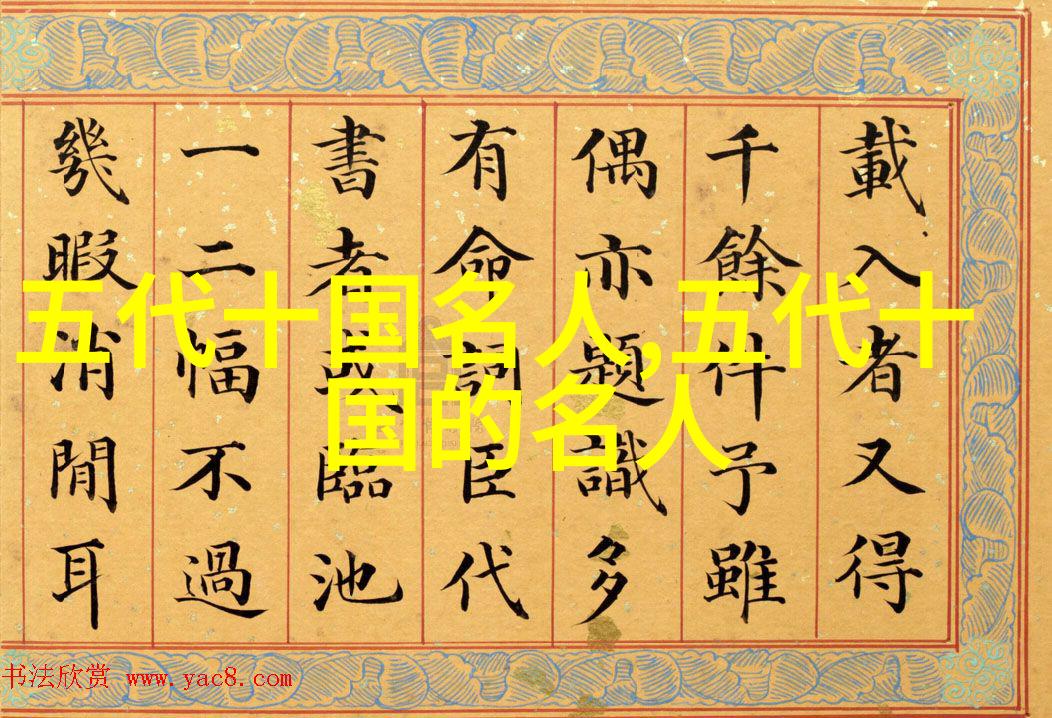 載入者又得
千餘件予雖
偶亦題識多
有命詞臣代
書者或臨池
一二幅不過
幾暇消閒耳
五代十国名人,五代十
国的名人
书法欣赏 www.yac8.com